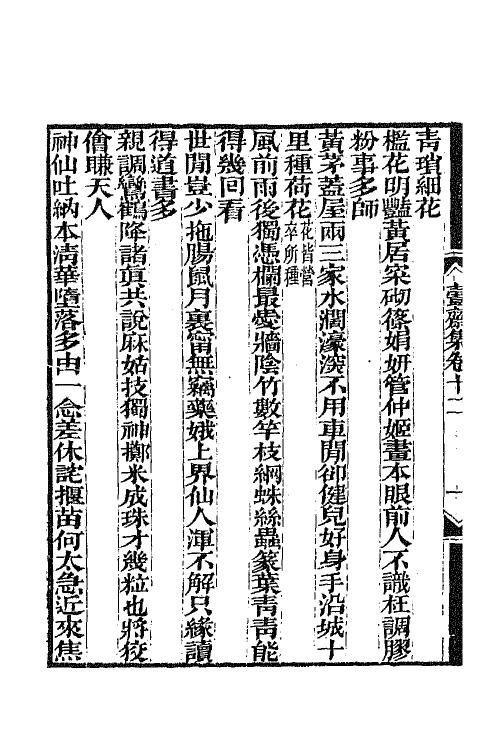 壹齋集卷十二
一
青瑣細花
檻花明豔黃居寀砌篠娟妍管仲姬畫本眼前人不識枉調膠
粉事多師
黃茅蓋屋兩三家水濶濠深不用車閒卻健兒好身手沿城十
里種荷花花皆營卒所種
風前雨後獨憑欄最愛牆陰竹數竿枝綱蛛絲蟲篆葉青青能
得幾回看
世閒豈少拖腸鼠月裏甯無竊藥娥上界仙人渾不解只緣讀
得道書多
親調鸞鶴降諸眞共說麻姑技獨神擲米成珠才幾粒也將狡
儈賺天人
神仙吐納本淸華墮落多由一念差休詫揠苗何太急近來焦